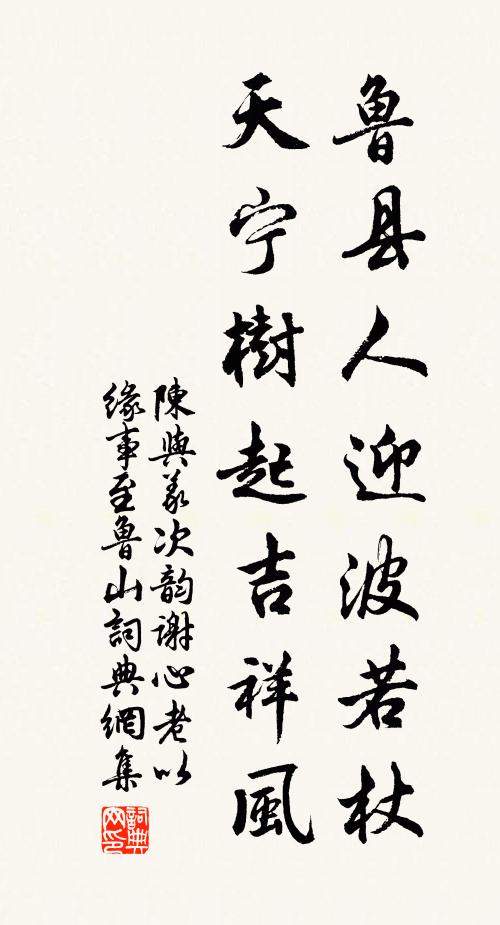 魯县人迎波若杖
天宁樹起吉祥風
陳與義次韵谢心老以
缘事至魯山詞典網集
詞典
网印